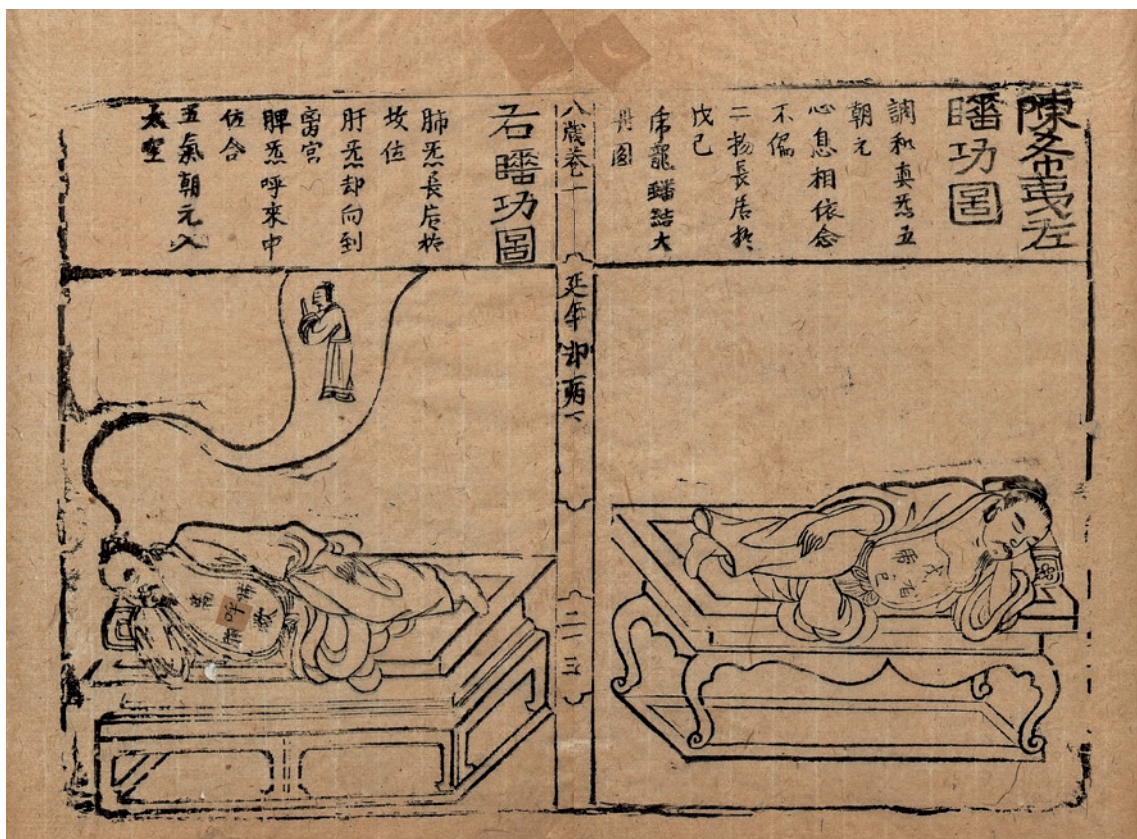 陳希夷左
睡功圖
調和真炁五
朝元
心息相依念
不偏
二物長居於
戊己
虎龍蟠結大
丹圓
八牋卷十
延年却病下
二十三
右睡功圖
肺炁長居於
坎位
肝炁却向到
离宫
脾炁呼來中
位合
五氣朝元入
太空